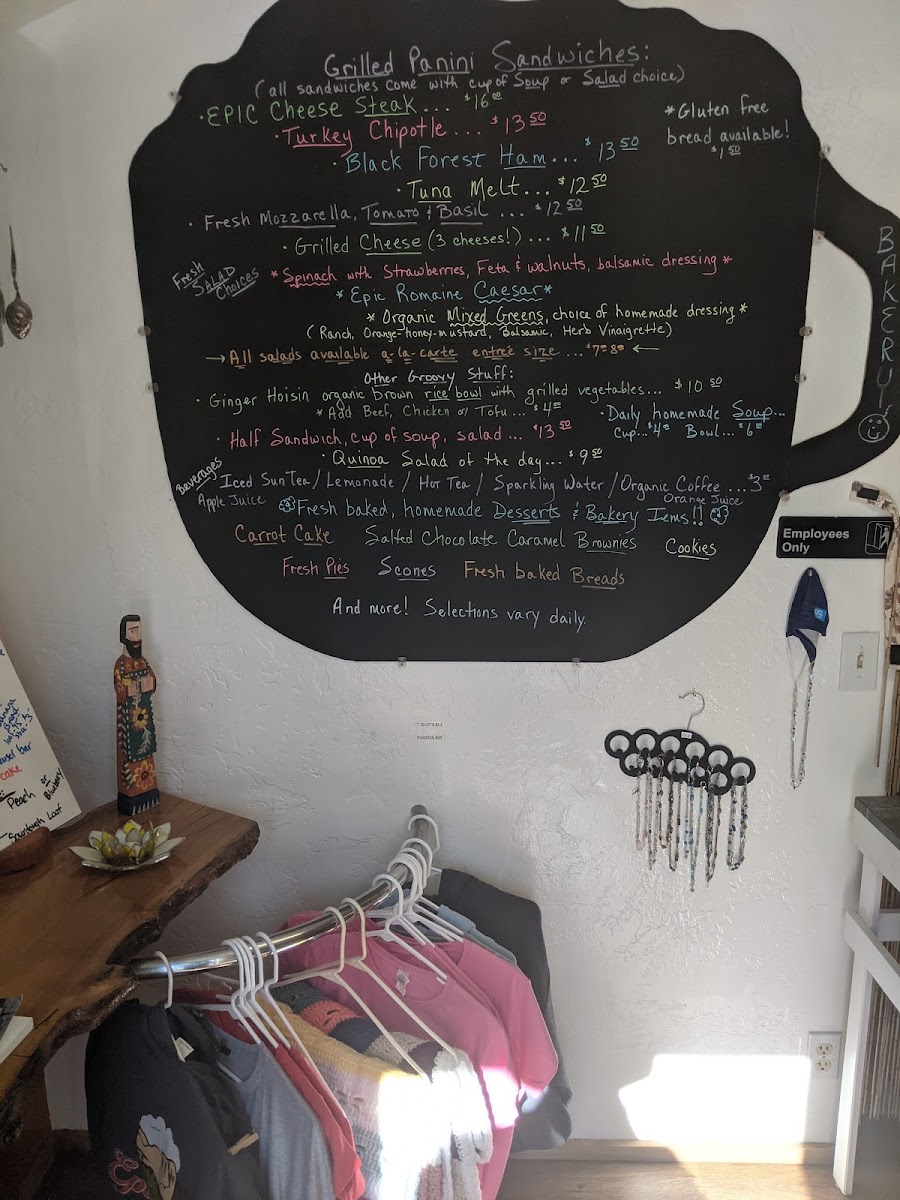 Grilled Panini Sandwiches:
(all sandwiches come with cup of Soup or Salad choice)
·EPIC Cheese Steak... $16 00
·Turkey Chipotle... $13 50
*Gluten free
bread available!
$1 50
·Black Forest Ham... $13 50
·Tuna Melt... $12 50
·Fresh Mozzarella, Tomato & Basil ... $12 50
·Grilled Cheese (3 cheeses!)... $11 50
Fresh
SALAD
Choices
*Spinach with Strawberries, Feta & walnuts, balsamic dressing*
*Epic Romaine Caesar*
*Organic Mixed Greens, choice of homemade dressing*
(Ranch, Orange-honey-mustard, Balsamic, Herb Vinaigrette)
→All salads available a-la-carte entreé size ... ←
Other Groovy Stuff:
·Ginger Hoisin organic brown rice bowl with grilled vegetables... $10 50
*Add Beef, Chicken or Tofu... $4 00
·Daily homemade Soup...
Cup... $4 00 Bowl... $6 00
·Half Sandwich, cup of soup, salad... $13 50
·Quinoa Salad of the day... $9 50
Beverages
Iced Sun Tea / Lemonade / Hot Tea / Sparkling Water / Organic Coffee ...$3 00
Apple Juice
Orange Juice
Fresh baked, homemade Desserts & Bakery Iems!!
Carrot Cake Salted Chocolate Caramel Brownies Cookies
Fresh Pies Scones Fresh baked Breads
And more! Selections vary daily.
BAKERY
Employees
Only
cake
Peach or
Blueberry
Sourdough Loaf